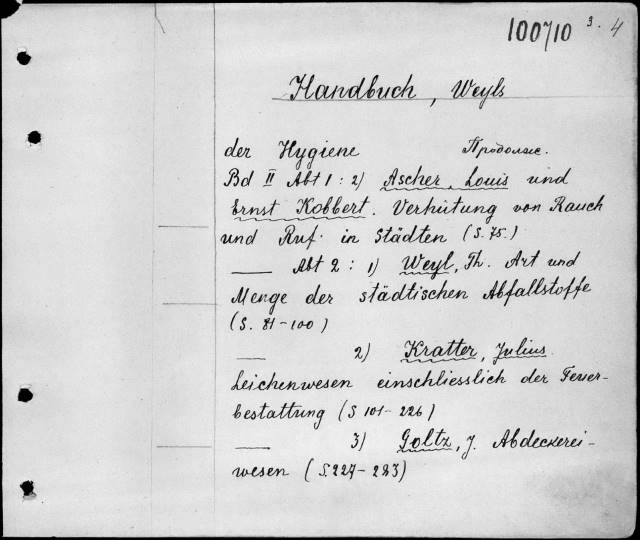 100710 3. 4
Handbuch, Weyls
der Hygiene Продолж.
Bd II Abt 1: 2) Ascher, Louis und
Ernst Kobbert. Verhütung von Rauch
und Ruf. in Städten (S. 75.)
—— Abt 2: 1) Weyl, Th. Art und
Menge der städtischen Abfallstoffe
(S. 81-100)
—— 2) Kratter, Julius.
Leichenwesen einschliesslich der Feuer-
bestattung (S 101-226)
—— 3) Goltz, J. Abdeckerei-
wesen (S. 227-283)